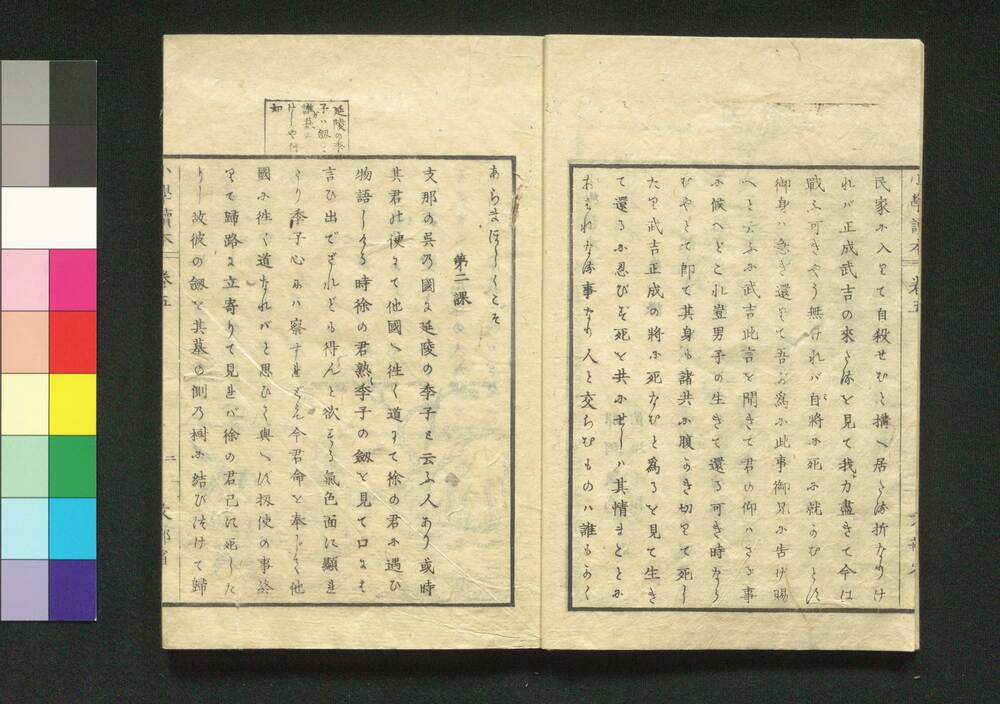 小學讀本 巻五
民家に入りて自殺せむと構へ居たる折なりけ
れバ正成武吉の來たるを見て我力盡きて今は
戰ふ可きやう無けれバ自將に死に就かむとす
御身ハ急ぎ還りて吾が爲に此事御兄に告げ賜
へと云ふに武吉此言を聞きて君の仰ハさる事
に候へどこれ豈男子の生きて還る可き時なら
むやとて即て其身も諸共に腹かき切りて死し
たり武吉正成の將に死なむと爲るを見て生き
て還るに忍びず死を共にせしハ其情まことに
あはれなる事なり人と交らむものハ誰もかく
あらまほしくこそ
第二課
支那の吳の國に延陵の季子と云ふ人あり或時
其君の使にて他國へ往く道にて徐の君に遇ひ
物語しける時徐の君熟季子の劔を見て口にこそ
言ひ出でざれども得んと欲する氣色面に顯れ
たり季子心にハ察すれども今君命を奉じて他
國に往く道なれバと思ひて與へず扨使の事終
りて歸路に立寄りて見れバ徐の君已に死した
りし故彼の劔を其墓の側の樹に結びつけて歸
延陵の季
子ハ劔を
けしや何
如
小學讀本 巻五
二
文部省